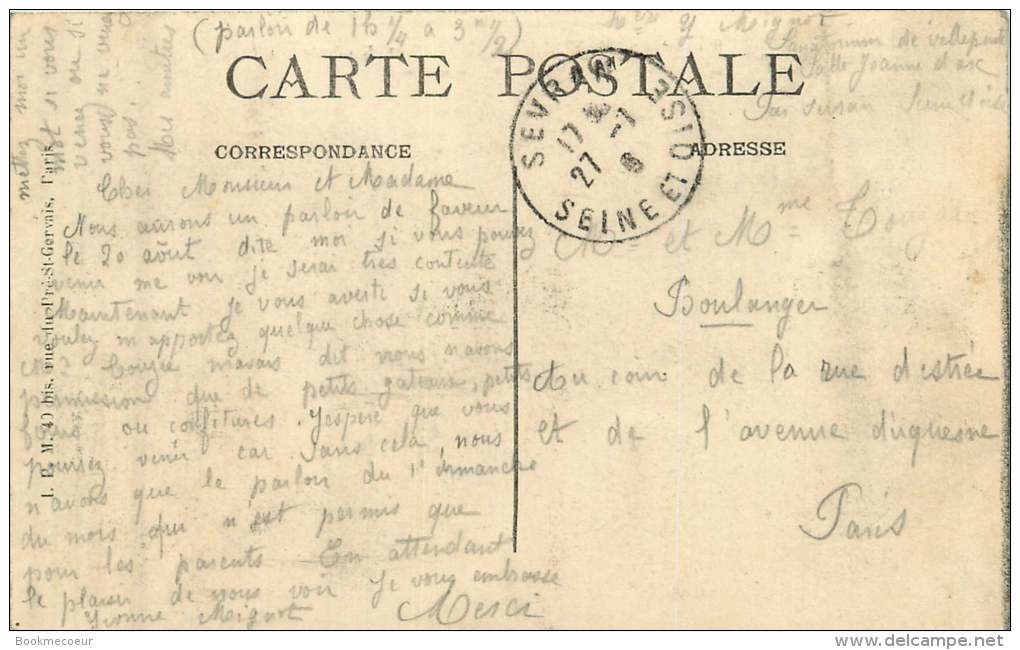 (parloir de 1h ¼ à 3h ½)
Y Mignot
Sanatorium de villepinte
Salle Jeanne d'arc
Par sevran Seine et oise
mettez moi un
mot si vous
venez ou si
vous ne venez
pas.
Mes amitiés
CARTE POSTALE
CORRESPONDANCE
ADRESSE
SEVRAN SEINE ET OISE
17
27 -7
Cher Monsieur et Madame
Nous aurons un parloir de faveur
le 20 août dite moi si vous pouvez
venir me voir je serai très contente
Maintenant je vous averti si vous
voulez m'apportez quelque chose comme
mavais dit nous n'avons
permission que de petits gateaux, petits
fours ou confitures. J'espère que vous
pourrez venir car sans cela, nous
n'avons que le parloir du 1er dimanche
du mois qui n'est permis que
pour les parents En attendant
le plaisir de vous voir je vous embrasse
Yvonne Mignot Merci
Mr et Mme
Boulanger
Au coin de la rue destrée
et de l'avenue duquesne
Paris
I. P. M. 40 bis, rue du Pré-St-Gervais, Paris
Bookmecoeur
delcampe.net